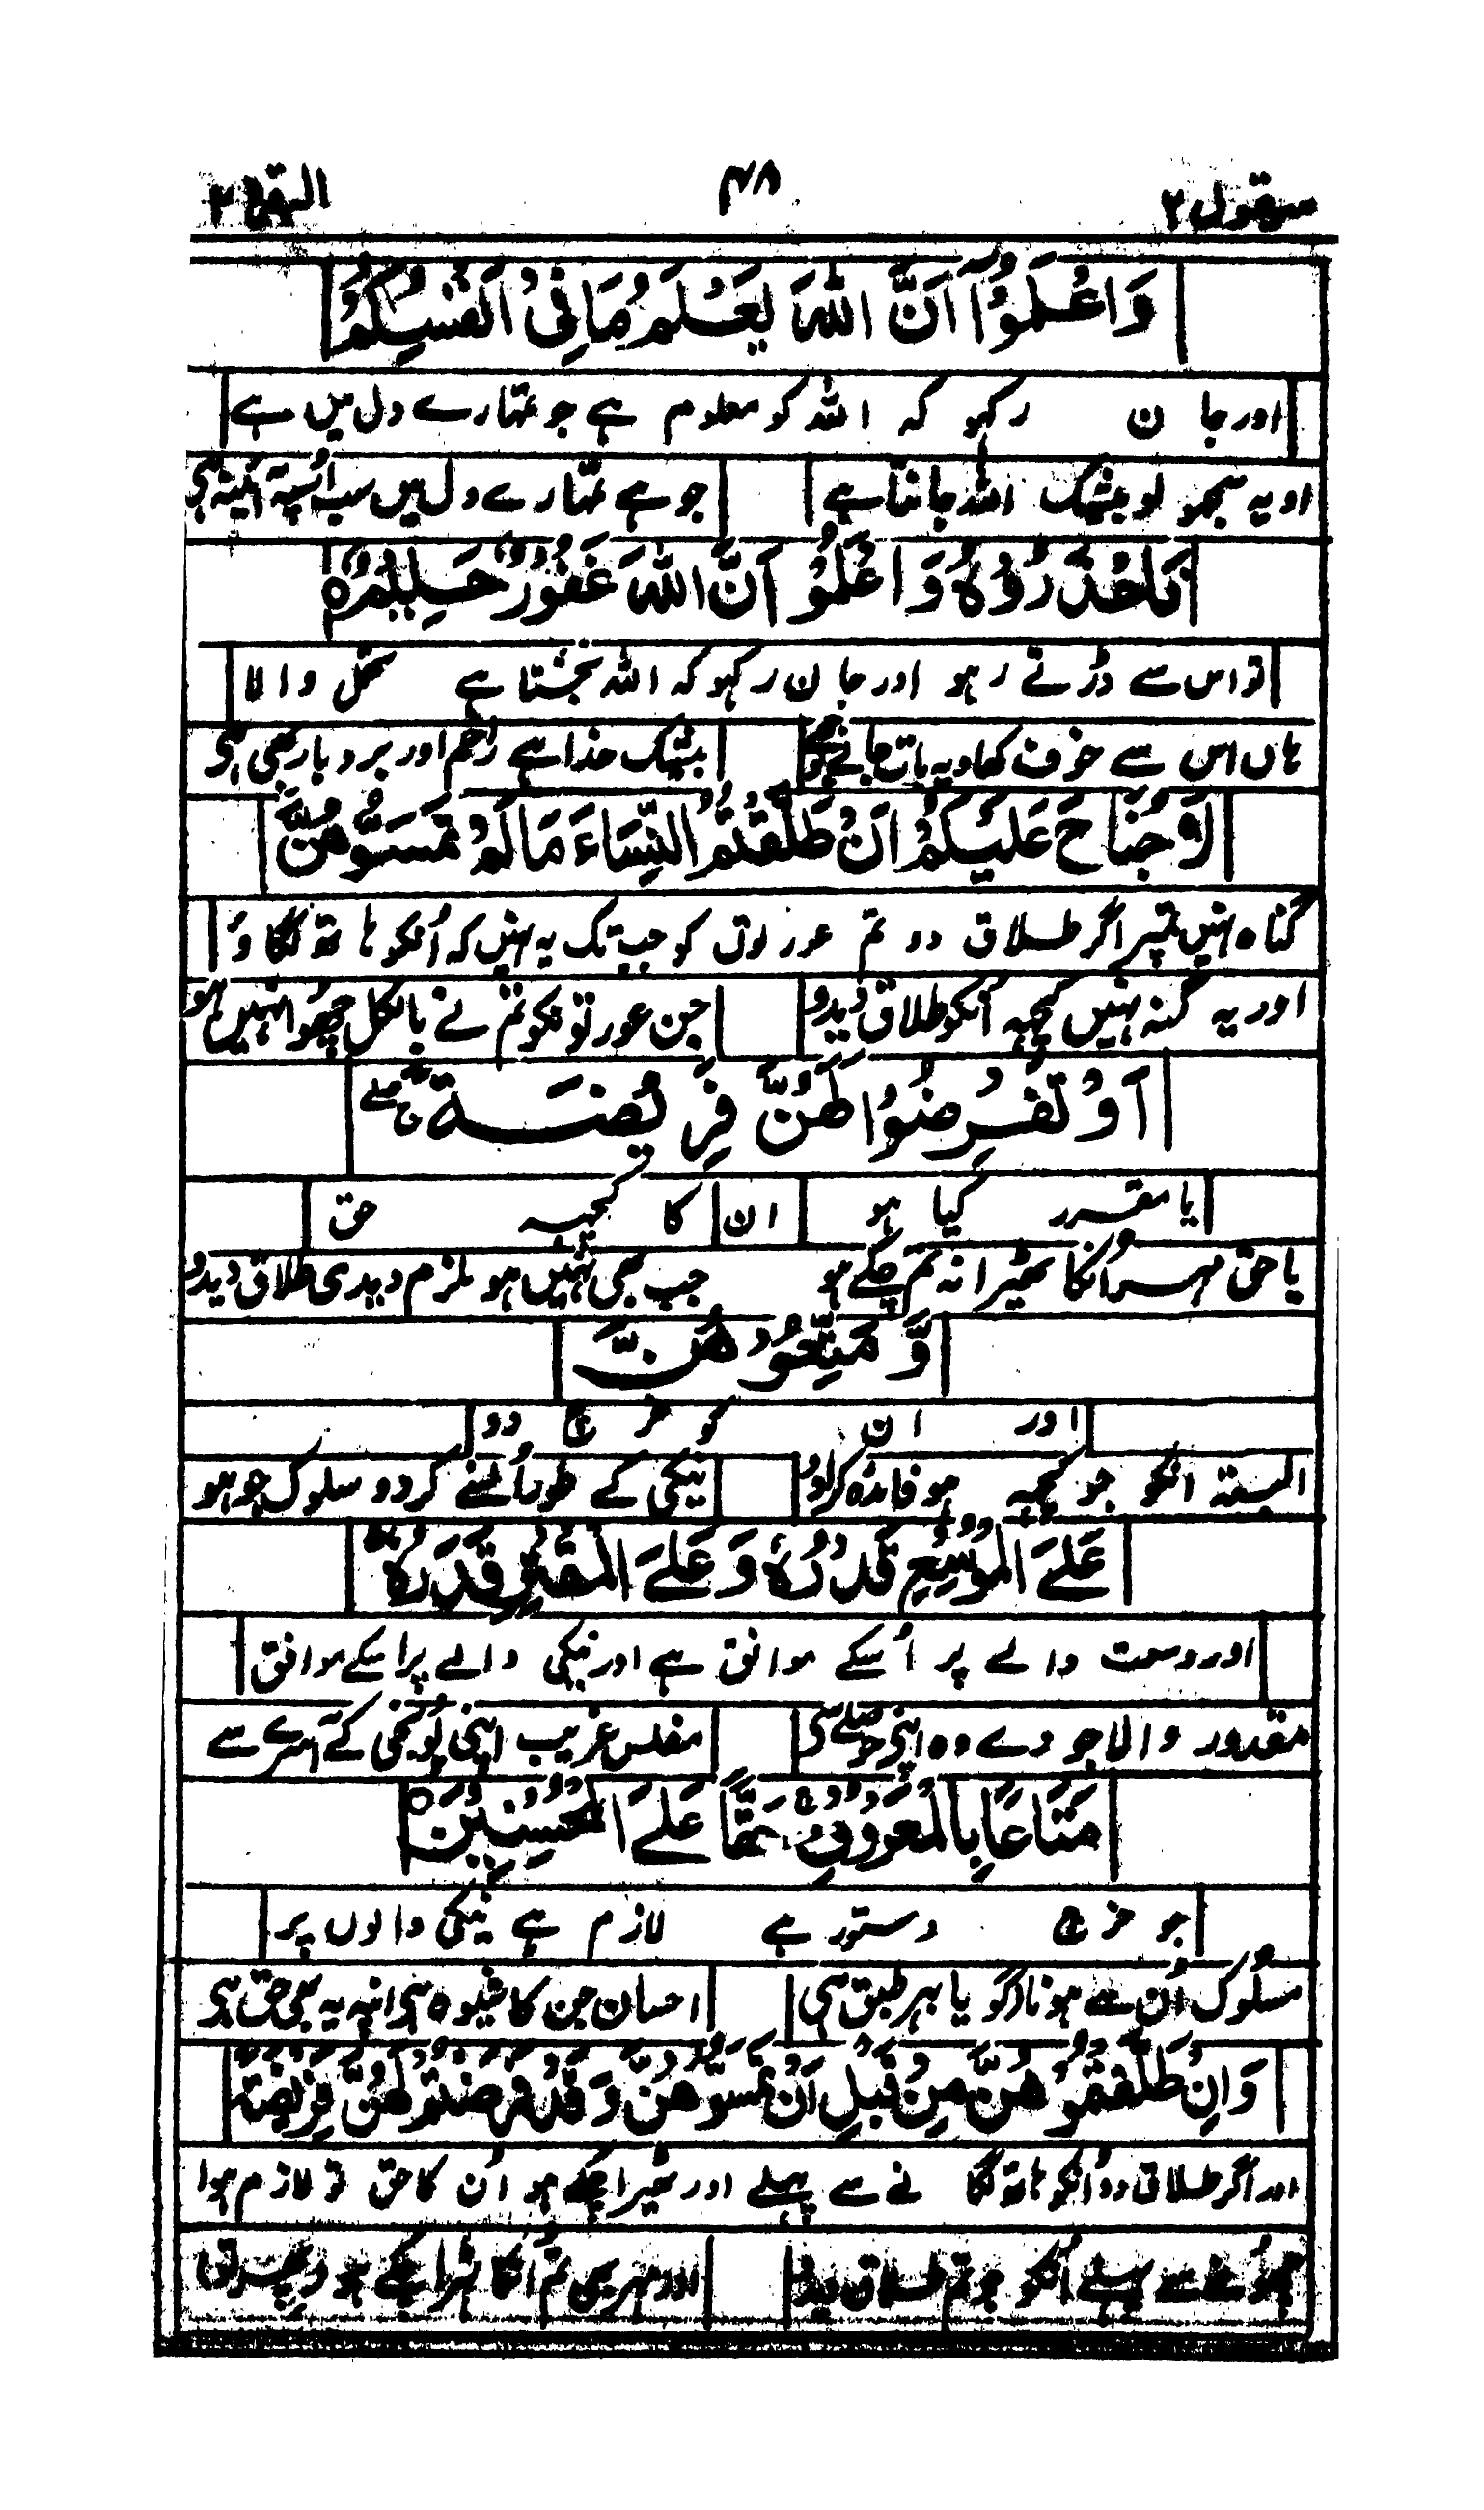 سیقول ۲ ۴۸ البقرة ۲
وَاعْلَمُوْٓا اَنَّ اللّٰهَ یَعْلَمُ مَا فِیْٓ اَنْفُسِكُمْ
اور جان رکہو کہ اللہ کو معلوم ہے جو تمہارے دل میں ہے
اور یہ سمجھو لو بیشک اللہ جانتا ہے جو ہے تمہارے دل میں سب
فَاحْذَرُوْهُ وَاعْلَمُوْٓا اَنَّ اللّٰهَ غَفُوْرٌ حَلِیْمٌ ○
تو اس سے ڈرتے رہو اور جان رکہو کہ اللہ بخشتا ہے تحمل والا
ہاں اس سے خوف کھاو یہ بات بیشک خدا ہے راحم اور بردبار بھی ہی
لَا جُنَاحَ عَلَیْكُمْ اِنْ طَلَّقْتُمُ النِّسَآءَ مَا لَمْ تَمَسُّوْهُنَّ
گناہ نہیں تمپر اگر طلاق دو تم عورتوں کو جب تک یہ نہیں کہ اُنکو ہاتھ لگاؤ
اور یہ گنہ نہیں کچھہ اُنکو طلاق دیدو جن عورتونکو تم نے بالکل چھُوا نہیں ہو
اَوْ تَفْرِضُوْا لَهُنَّ فَرِیْضَةً
یا مقرر کیا ہو ان کا کچھہ حق
یا حق مہر اُنکا ٹھیرا نہ تم چکے ہو جب بھی نہیں ہو ملزم دیدی طلاق دیدو
وَّمَتِّعُوْهُنَّ
اور ان کو خرچ دو
البتہ انکو جو کچھہ ہو فائدہ کرادو نیکی کے طور کردو سلوک جو ہو
عَلَی الْمُوْسِعِ قَدَرُهٗ وَعَلَی الْمُقْتِرِ قَدَرُهٗ
اور وسعت والے پر اُسکے موافق ہے اور تنگی والے پر اسکے موافق
مقدور والا جو دے وہ اپنی مفلس غریب اپنی پُونجی کے آسرے سے
مَتَاعًا بِالْمَعْرُوْفِ ۚ حَقًّا عَلَی الْمُحْسِنِیْنَ ○
جو خرچ دستور ہے لازم ہے نیکی والوں پر
سلوک اُن سے ہونا گویا بہر طبق ہی احسان جن کا شیوہ ہی انپہ یہ بھی حق ہی
وَاِنْ طَلَّقْتُمُوْهُنَّ مِنْ قَبْلِ اَنْ تَمَسُّوْهُنَّ وَقَدْ فَرَضْتُمْ لَهُنَّ فَرِیْضَةً
اور اگر طلاق دو اُنکو ہاتھ لگانے سے پہلے اور ٹھیرا چکے ہو اُن کا حق تو لازم ہوا
چھونے سے پہلے انکو جو تم طلاق دیدو اور مہر بھی تم اُنکا ٹھرا چکے ہو